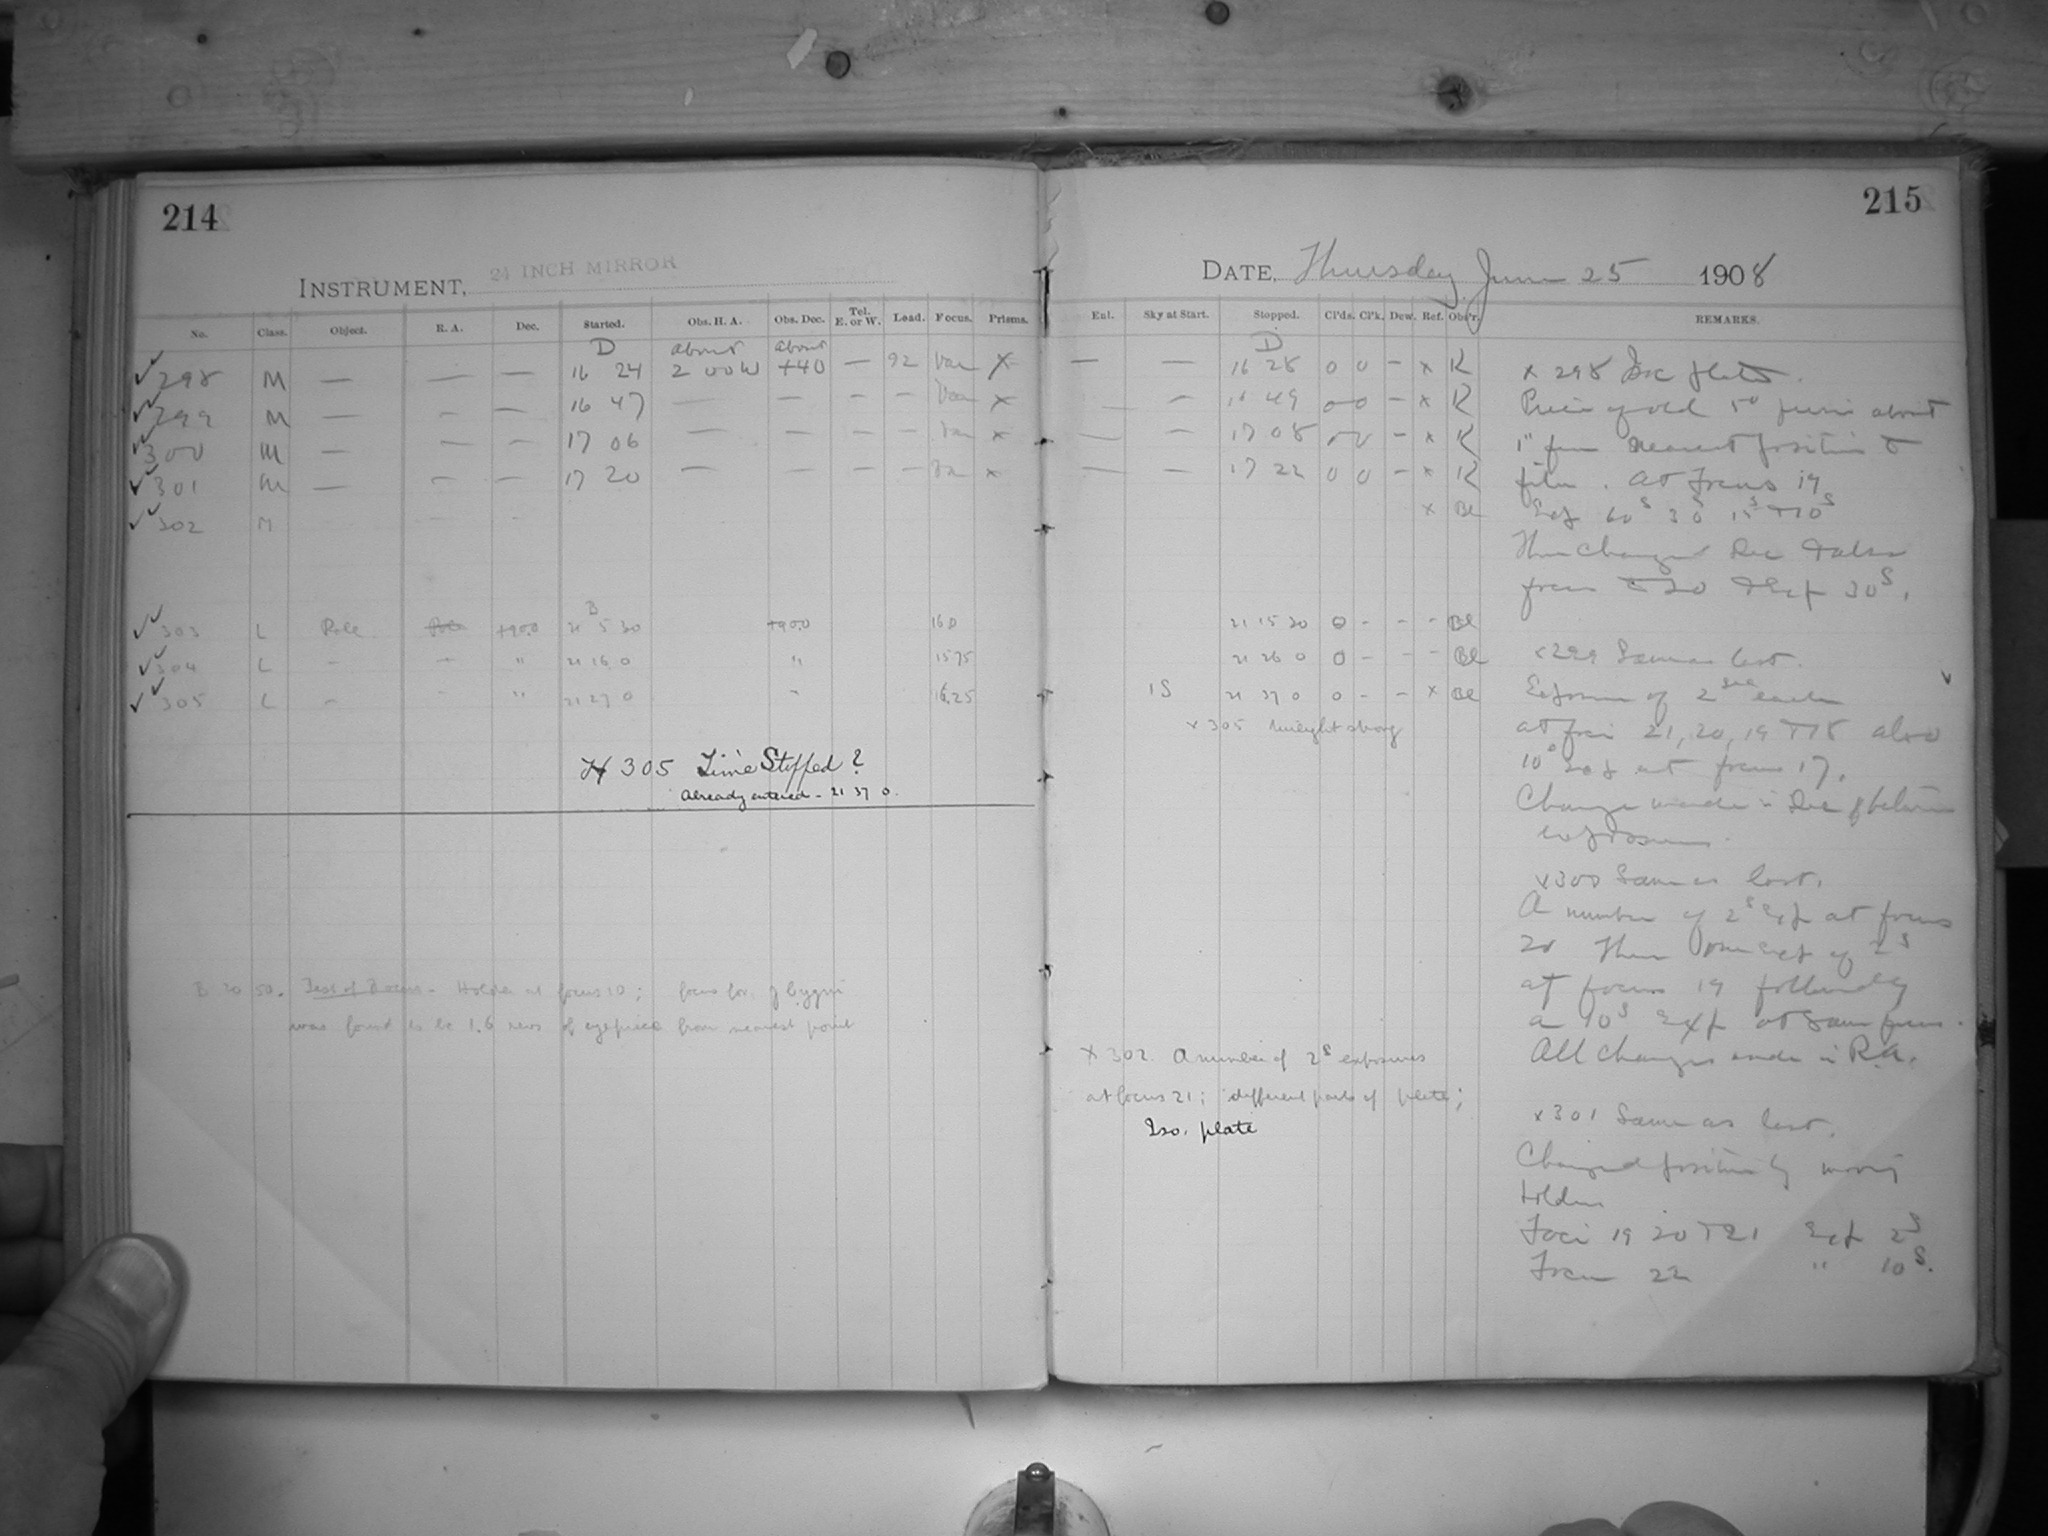 214
INSTRUMENT, 24 INCH MIRROR
No. Class. Object. R. A. Dec. Started. Obs. H. A. Obs. Dec. Tel. E. or W. Load. Focus. Prisms.
D about about
298 M — — — 16 24 2 00 W +40 — 92 Var x
299 M — — — 16 47 — — — — Var x
300 M — — — 17 06 — — — — Var x
301 M — — — 17 20 — — — — Var x
302 M — —
B
303 L Pole +90.0 21 5 30 +90.0 16.0
304 L — — " 21 16 0 " 15.75
305 L — — " 21 27 0 " 16.25
H 305 Time Stopped?
Already entered - 21 37 0.
B 20 50. Test of Focus - Holder at focus 10; focus for γ Cygni
was found to be 1.6 revs of eyepiece from nearest point
215
DATE, Thursday June 25 1908
Ent. Sky at Start. Stopped. Cl'ds. Cl'k. Dew. Ref. Obs'r. REMARKS.
D
— — 16 28 0 0 — x K
— — 16 49 0 0 — x K
— — 17 08 0 0 — x K
— — 17 22 0 0 — x K
x Bl
21 15 30 0 - - - Bl
21 26 0 0 - - - Bl
1S 21 37 0 0 - - x Bl
x 305 twilight strong
x 302. A number of 2s exposures
at focus 21; different parts of plate;
Iso. plate
x 298 Iso plate.
1" from nearest position to
film. At focus 19
Exp 60s 30s 15s + 10s
Then changed Dec + also
focus to 20 + Exp 30s.
x 299 Same as last.
Exposures of 2 sec each
at foci 21, 20, 19 + 18 also
10s exp at focus 17.
Change made in Dec between
exposures.
x 300 Same as last.
A number of 2s Exp at focus
20 Then one Exp of 2s
at focus 19 followed by
a 10s Exp at same focus.
All changes made in R.A.
x 301 Same as last.
Changed position by moving
Holder
Foci 19 20 + 21 Exp 2s
Focus 22 " 10s.